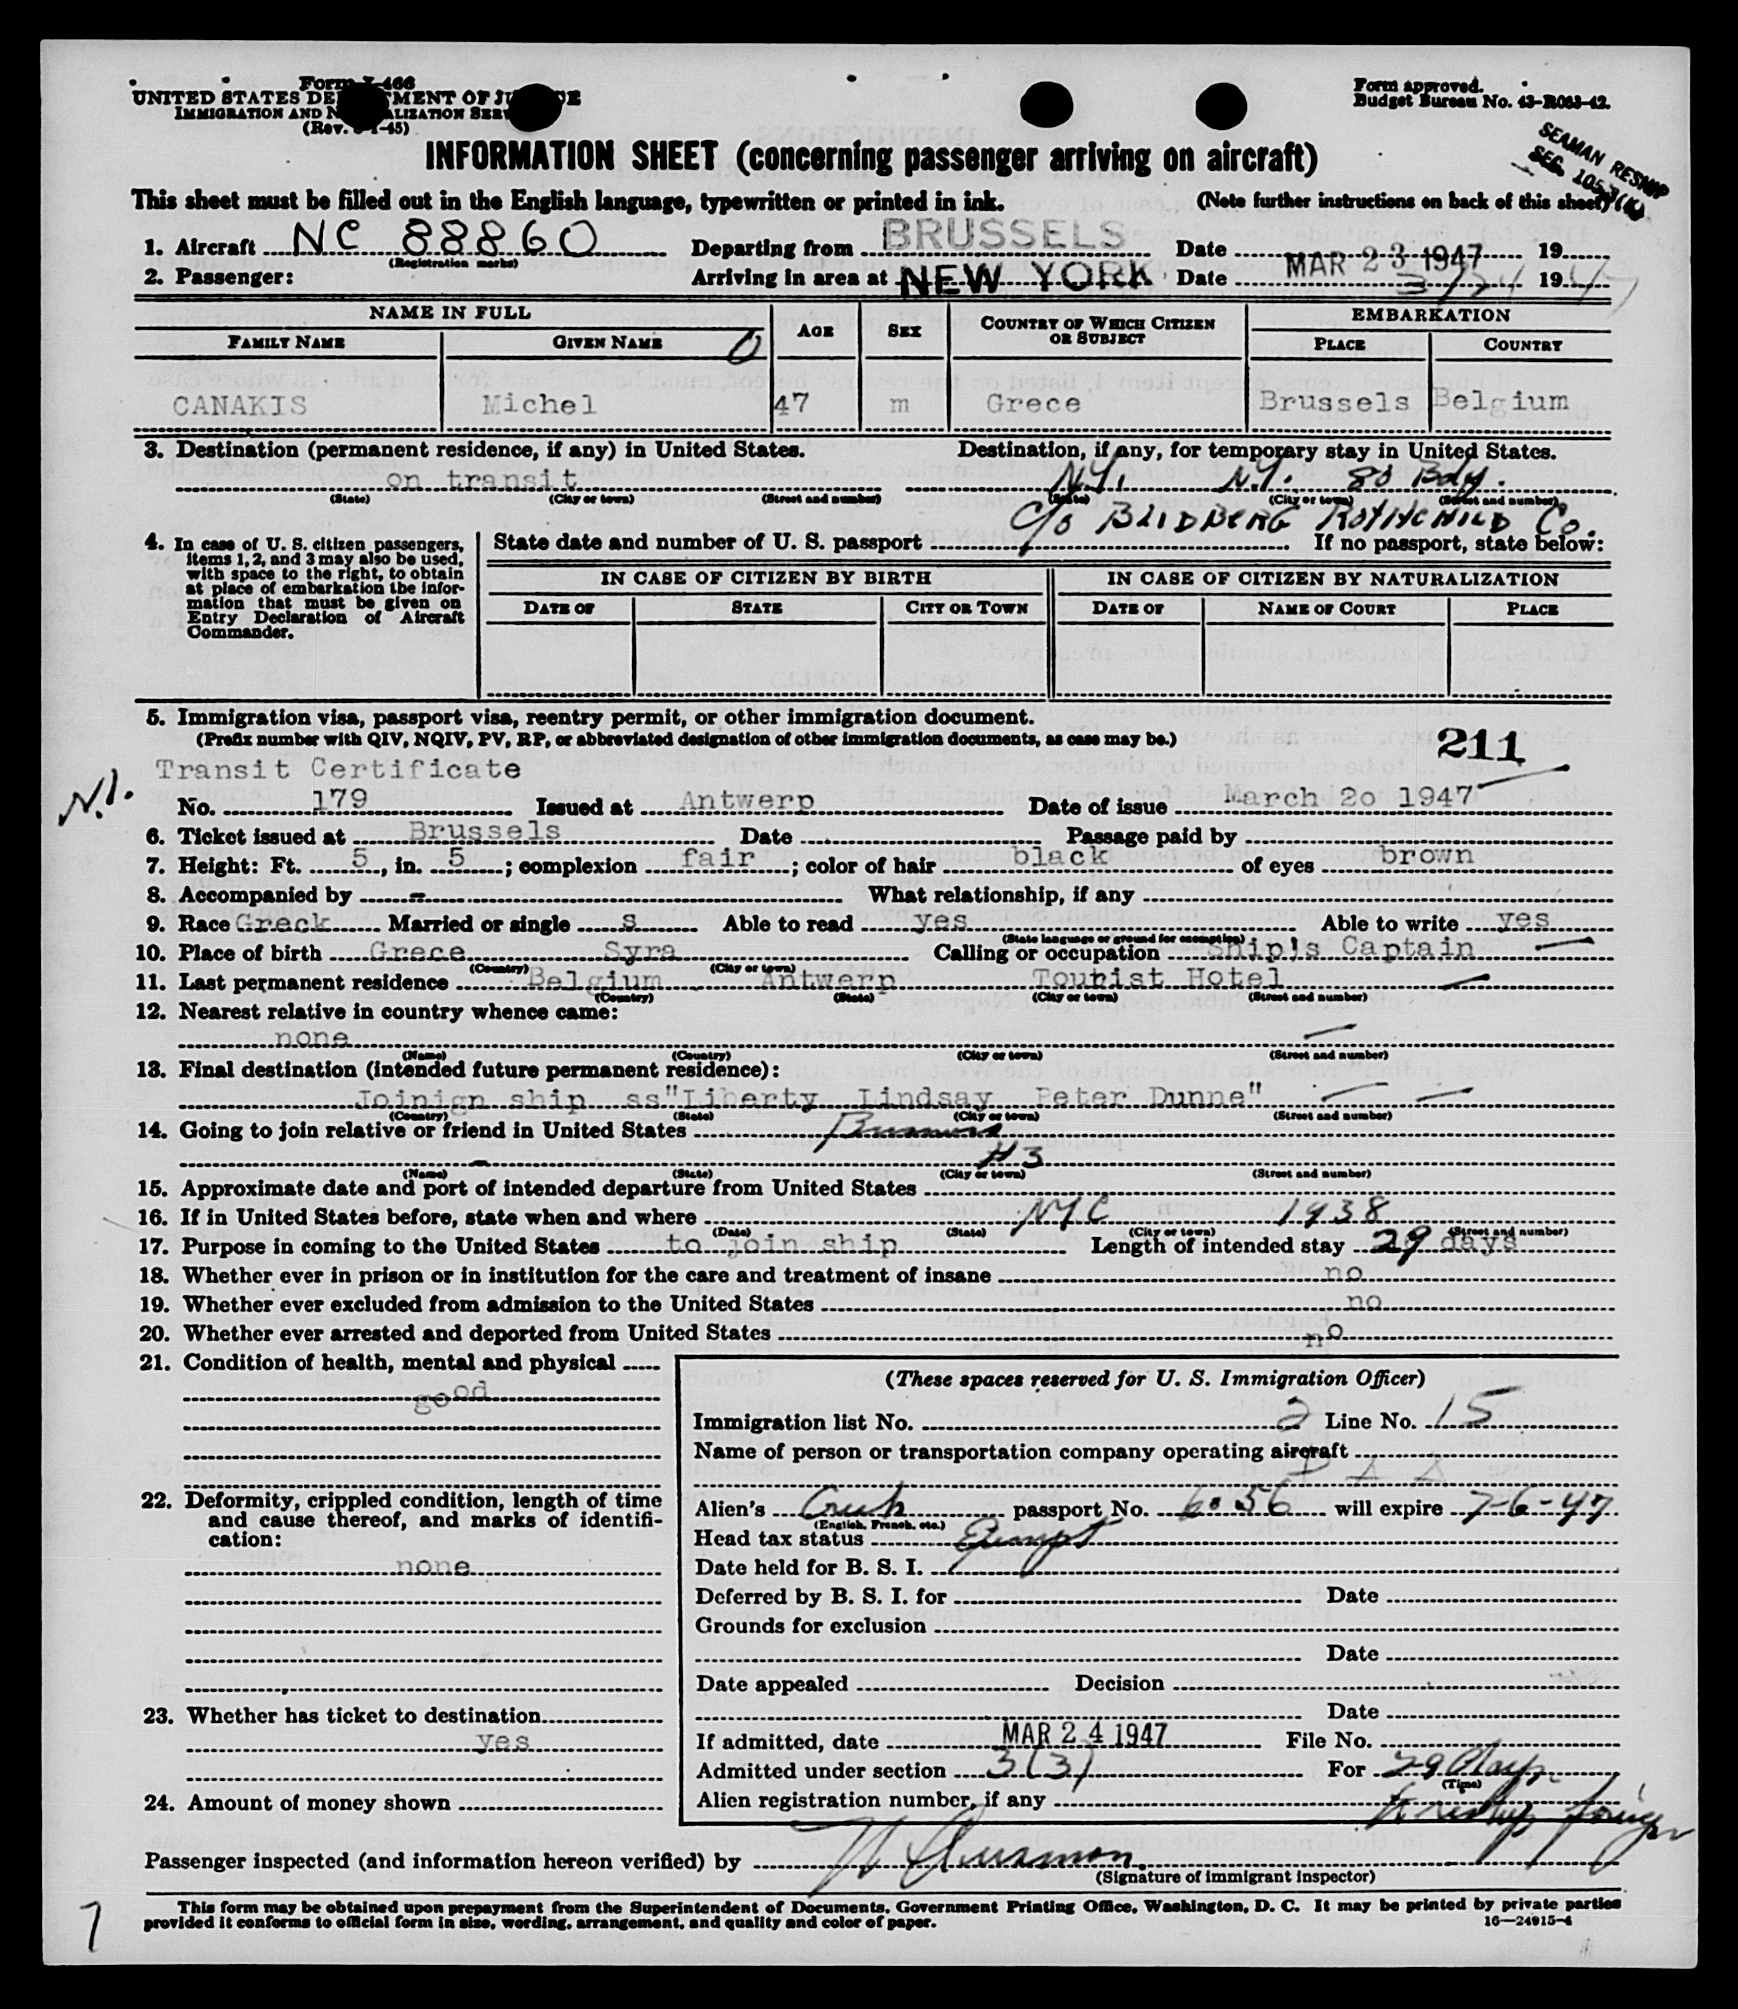 Form I-466
UNITED STATES DEPARTMENT OF JUSTICE
IMMIGRATION AND NATURALIZATION SERVICE
(Rev. 6-1-45)
Form approved.
Budget Bureau No. 43-R083-42.
SEAMAN RESHIP
SEC. 105.3
INFORMATION SHEET (concerning passenger arriving on aircraft)
This sheet must be filled out in the English language, typewritten or printed in ink. (Note further instructions on back of this sheet)
1. Aircraft NC 88860 Departing from BRUSSELS Date MAR 23 1947 19
(Registration marks)
2. Passenger: Arriving in area at NEW YORK Date 3/24 1947
NAME IN FULL AGE SEX COUNTRY OF WHICH CITIZEN OR SUBJECT EMBARKATION
FAMILY NAME GIVEN NAME PLACE COUNTRY
CANAKIS Michel 47 m Grece Brussels Belgium
3. Destination (permanent residence, if any) in United States. Destination, if any, for temporary stay in United States.
on transit N.Y. N.Y. 80 Bdy.
(State) (City or town) (Street and number) (State) (City or town) (Street and number)
c/o Co.
4. In case of U. S. citizen passengers, items 1, 2, and 3 may also be used, with space to the right, to obtain at place of embarkation the information that must be given on Entry Declaration of Aircraft Commander.
State date and number of U. S. passport If no passport, state below:
IN CASE OF CITIZEN BY BIRTH IN CASE OF CITIZEN BY NATURALIZATION
DATE OF STATE CITY OR TOWN DATE OF NAME OF COURT PLACE
5. Immigration visa, passport visa, reentry permit, or other immigration document.
(Prefix number with QIV, NQIV, PV, RP, or abbreviated designation of other immigration documents, as case may be.) 211
Transit Certificate
No. 179 Issued at Antwerp Date of issue March 2o 1947
6. Ticket issued at Brussels Date Passage paid by
7. Height: Ft. 5, in. 5; complexion fair; color of hair black of eyes brown
8. Accompanied by - What relationship, if any
9. Race Greck Married or single s Able to read yes Able to write yes
(State language or ground for exemption)
10. Place of birth Grece Syra Calling or occupation Ship's Captain
(Country) (City or town)
11. Last permanent residence Belgium Antwerp Tourist Hotel
(Country) (State) (City or town) (Street and number)
12. Nearest relative in country whence came:
none
(Name) (Country) (City or town) (Street and number)
13. Final destination (intended future permanent residence):
Joinign ship ss"Liberty Lindsay Peter Dunne"
(Country) (State) (City or town) (Street and number)
14. Going to join relative or friend in United States
- H3
(Name) (State) (City or town) (Street and number)
15. Approximate date and port of intended departure from United States
16. If in United States before, state when and where NYC 1938
(Date) (State) (City or town) (Street and number)
17. Purpose in coming to the United States to join ship Length of intended stay 29 days
18. Whether ever in prison or in institution for the care and treatment of insane no
19. Whether ever excluded from admission to the United States no
20. Whether ever arrested and deported from United States no
21. Condition of health, mental and physical
good
22. Deformity, crippled condition, length of time and cause thereof, and marks of identification:
none
23. Whether has ticket to destination
yes
24. Amount of money shown
(These spaces reserved for U. S. Immigration Officer)
Immigration list No. 2 Line No. 15
Name of person or transportation company operating aircraft
P A A
Alien's passport No. 6056 will expire 7-6-47
(English, French, etc.)
Head tax status Exempt
Date held for B. S. I.
Deferred by B. S. I. for Date
Grounds for exclusion
Date
Date appealed Decision
Date
If admitted, date MAR 24 1947 File No.
Admitted under section 3(3) For 29 days
(Time)
Alien registration number, if any to reship foreign
Passenger inspected (and information hereon verified) by
(Signature of immigrant inspector)
This form may be obtained upon prepayment from the Superintendent of Documents, Government Printing Office, Washington, D. C. It may be printed by private parties
provided it conforms to official form in size, wording, arrangement, and quality and color of paper. 16—24915-4
7